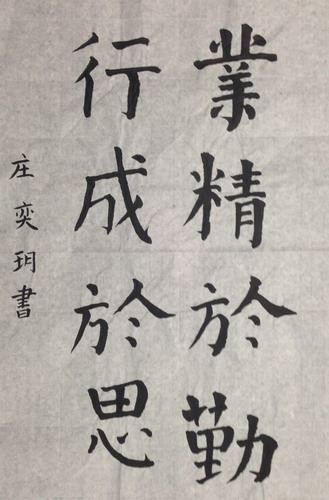 業精於勤
行成於思
庄奕玥書